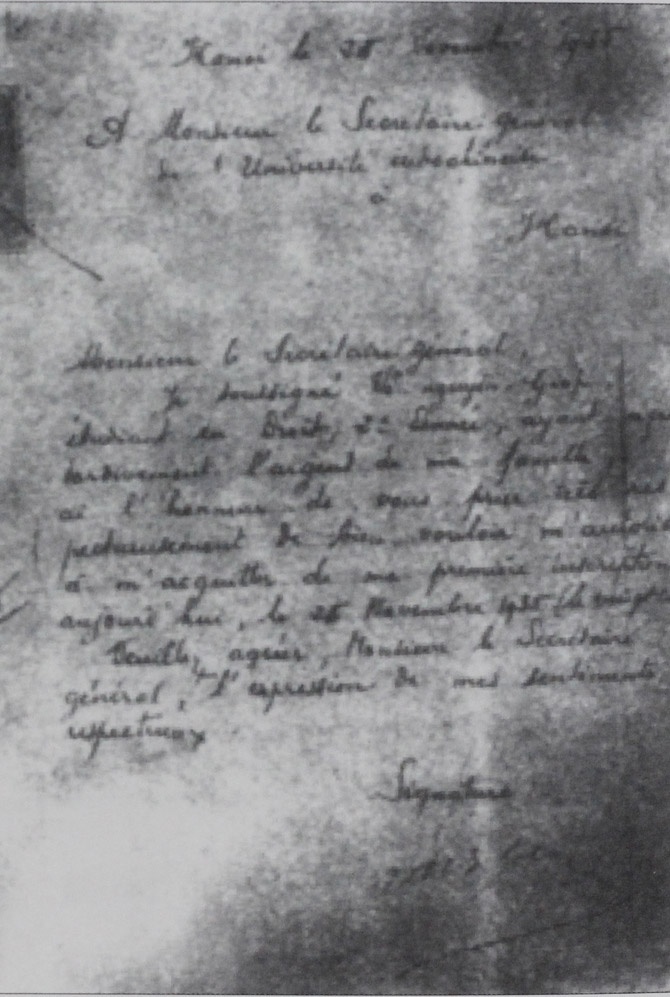 Hanoi le 28 Novembre 1935
A Monsieur le Secrétaire général
de l'Université indochinoise
à
Hanoi
Monsieur le Secrétaire général,
Je soussigné Võ nguyên Giap,
étudiant en Droit, 2e année, ayant reçu
tardivement l'argent de ma famille,
ai l'honneur de vous prier très res
pectueusement de bien vouloir m'autori
à m'acquitter de ma première inscription
aujourd'hui, le 28 Novembre 1935
Veuillez agréer, Monsieur le Secrétaire
général, l'expression de mes sentiments
respectueux
Signature